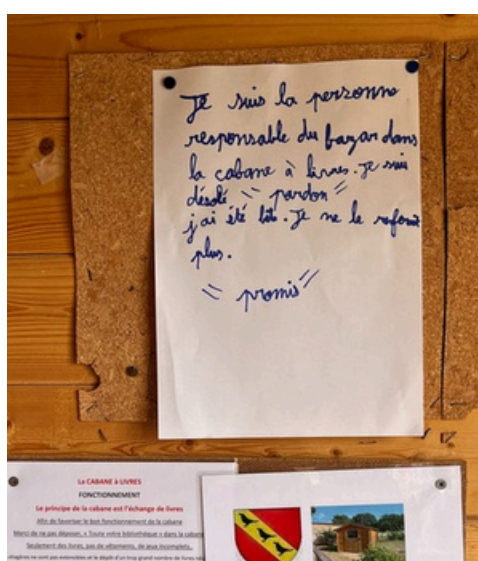 Je suis la personne
responsable du bazar dans
la cabane à livres. Je suis
désolé "pardon"
j'ai été bête. Je ne le referait
plus.
"promis"
La CABANE à LIVRES
FONCTIONNEMENT
Le principe de la cabane est l'échange de livres
Afin de favoriser le bon fonctionnement de la cabane
Merci de ne pas déposer, « Toute votre bibliothèque » dans la cabane
Seulement des livres, pas de vêtements, de jeux incomplets.
étagères ne sont pas extensibles et le dépôt d'un trop grand nombre de livres